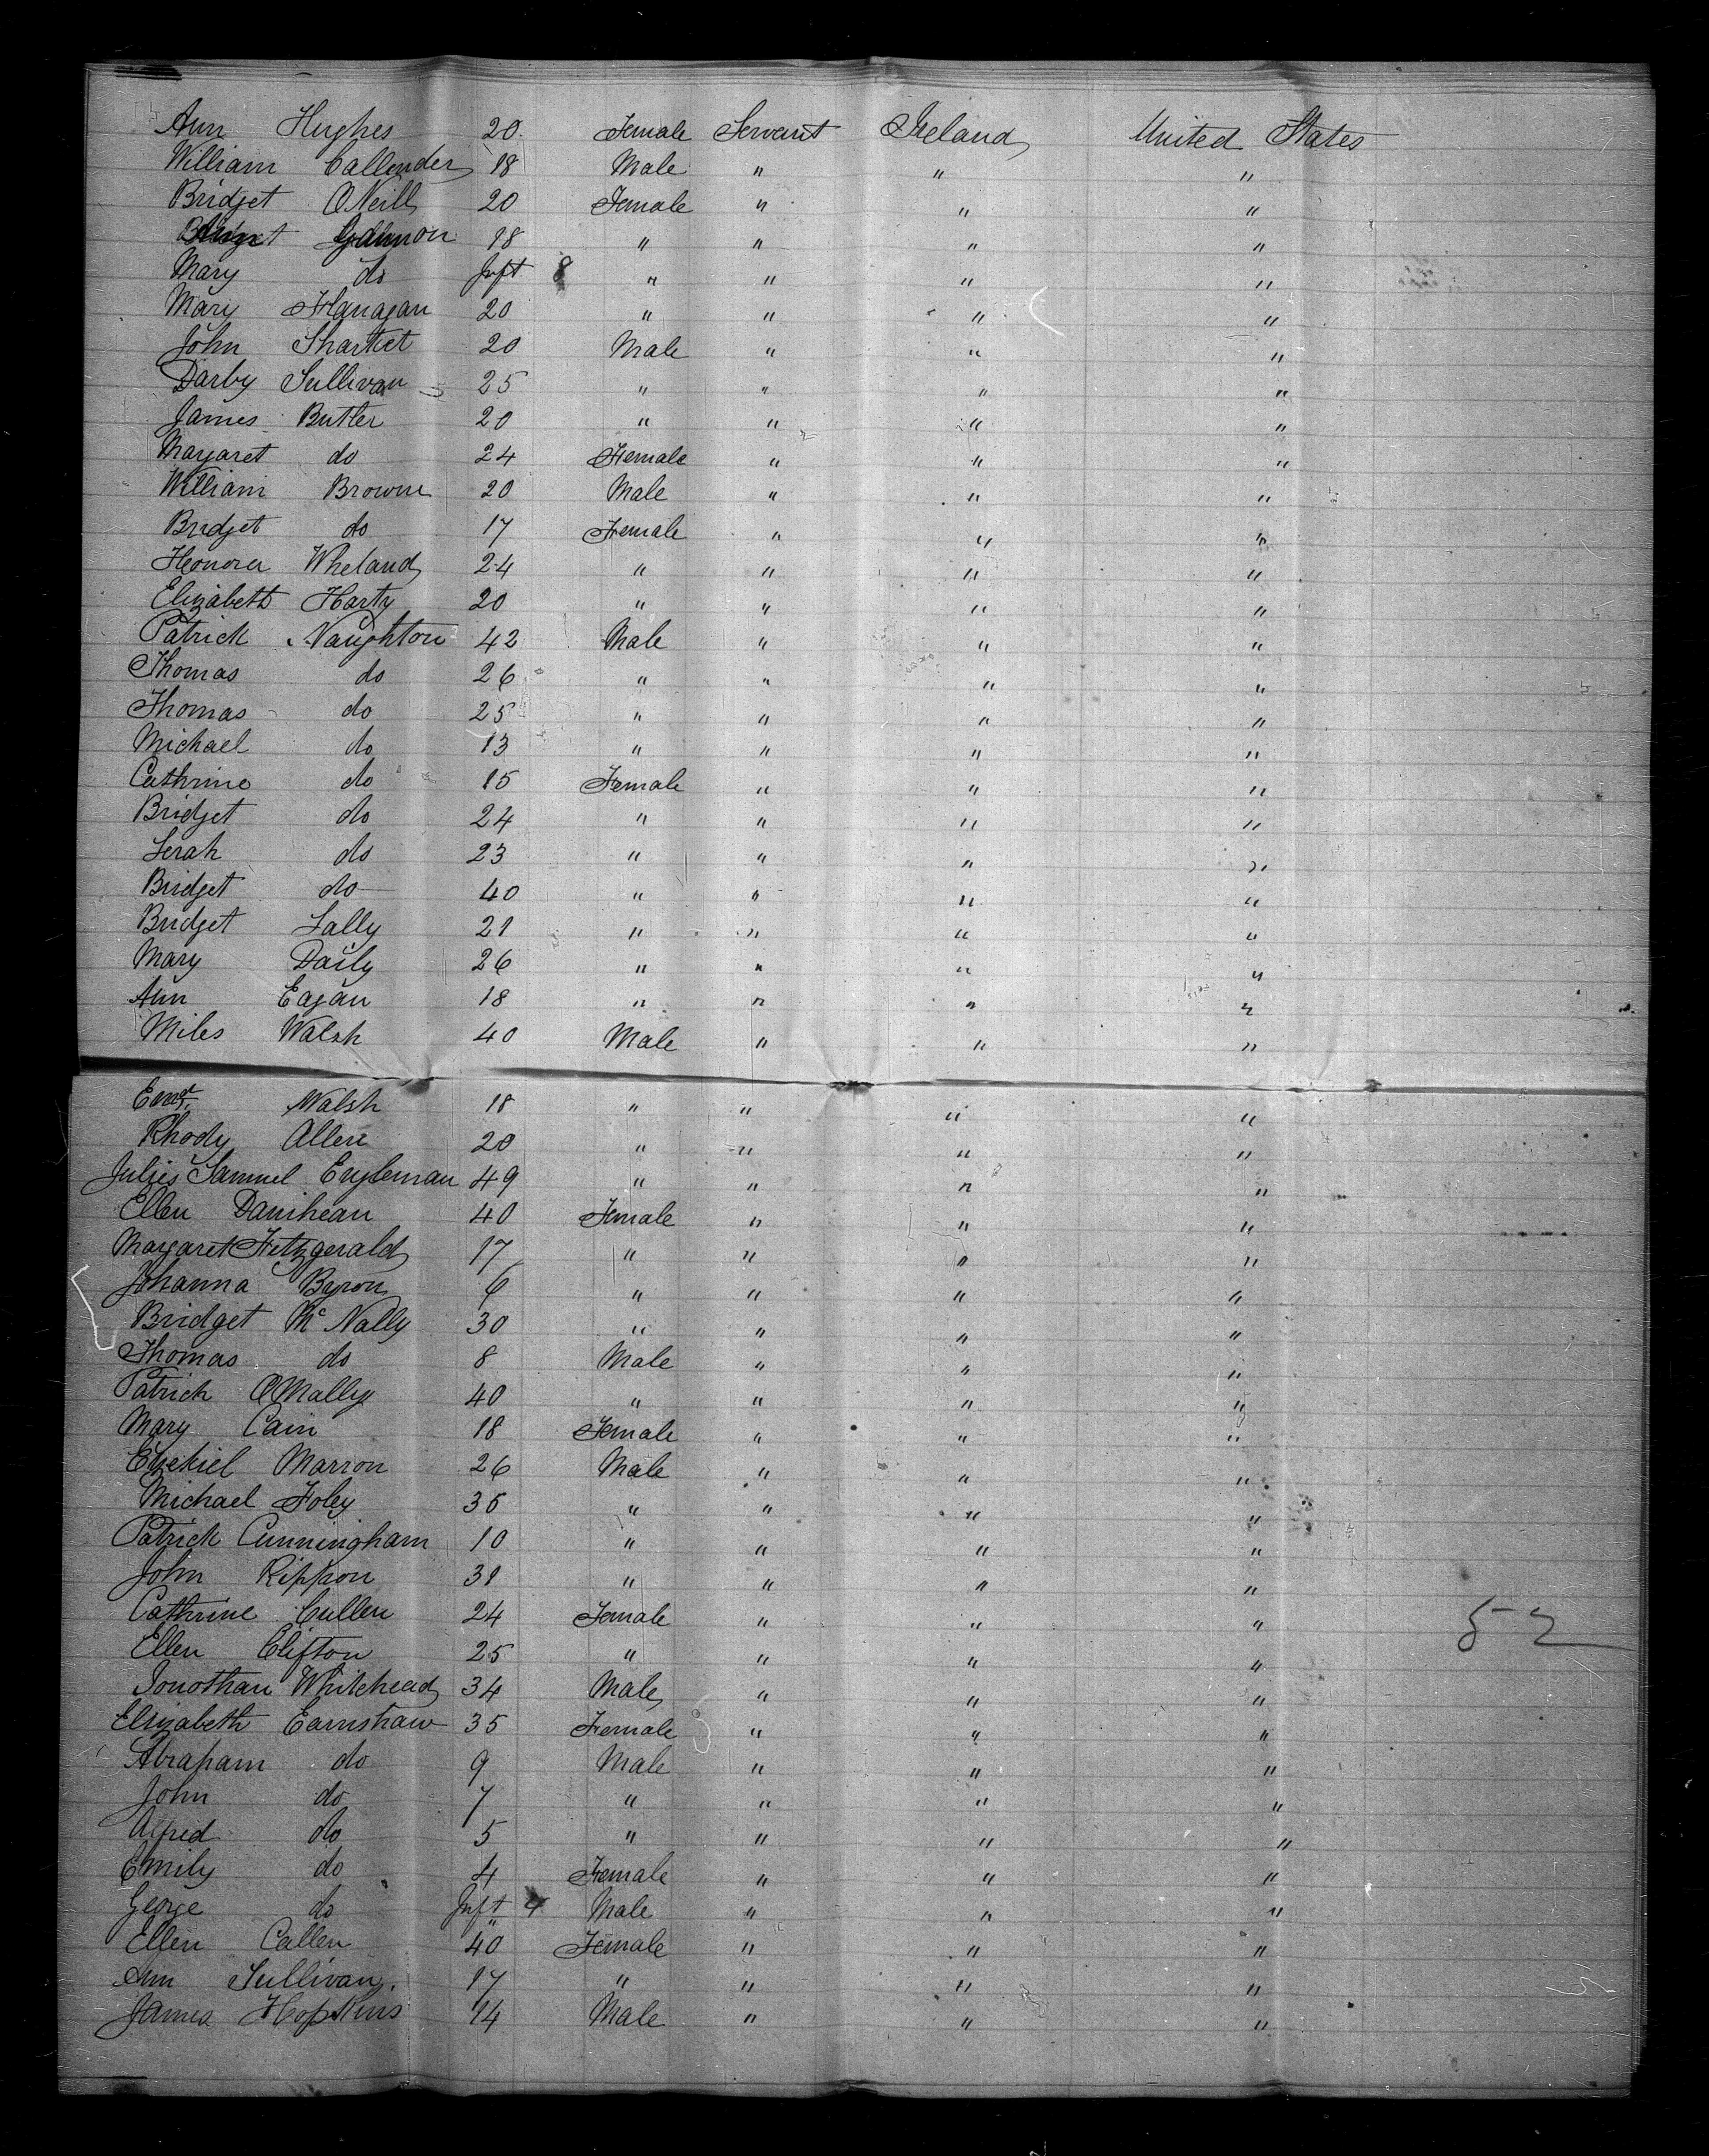 Ann Hughes 20 Female Servant Ireland United States
William Callender 18 Male " " "
Bridget O'Neill 20 Female " " "
18 " " " "
Mary do Inft 8 " " " "
Mary Flanagan 20 " " " "
John Sharket 20 Male " " "
Darby Sullivan 25 " " " "
James Butler 20 " " " "
Margaret do 24 Female " " "
William Browne 20 Male " " "
Bridget do 17 Female " " "
Honora Wheland 24 " " " "
Elizabeth Harty 20 " " " "
Patrick Naughton 42 Male " " "
Thomas do 26 " " " "
Thomas do 25 " " " "
Michael do 13 " " " "
Cathrine do 15 Female " " "
Bridget do 24 " " " "
Serah do 23 " " " "
Bridget do 40 " " " "
Bridget Lally 21 " " " "
Mary Daily 26 " " " "
Ann Eagan 18 " " " "
Miles Walsh 40 Male " " "
Walsh 18 " " " "
Rhody Allen 20 " " " "
Julies Samuel Engleman 49 " " " "
Ellen Danihean 40 Female " " "
Margaret Fitzgerald 17 " " " "
Johanna Byron 6 " " " "
Bridget McNally 30 " " " "
Thomas do 8 Male " " "
Patrick O'Mally 40 " " " "
Mary Cain 18 Female " " "
Ezekiel Marron 26 Male " " "
Michael Foley 35 " " " "
Patrick Cunningham 10 " " " "
John Rippon 31 " " " "
Cathrine Cullen 24 Female " " "
52
Ellen Clifton 25 " " " "
Jonothan Whitehead 34 Male " " "
Elizabeth Earnshaw 35 Female " " "
Abraham do 9 Male " " "
John do 7 " " " "
Alfred do 5 " " " "
Emily do 4 Female " " "
George do Inft 4 Male " " "
Ellen Callen 40 Female " " "
Ann Sullivan 17 " " " "
James Hopkins 14 Male " " "